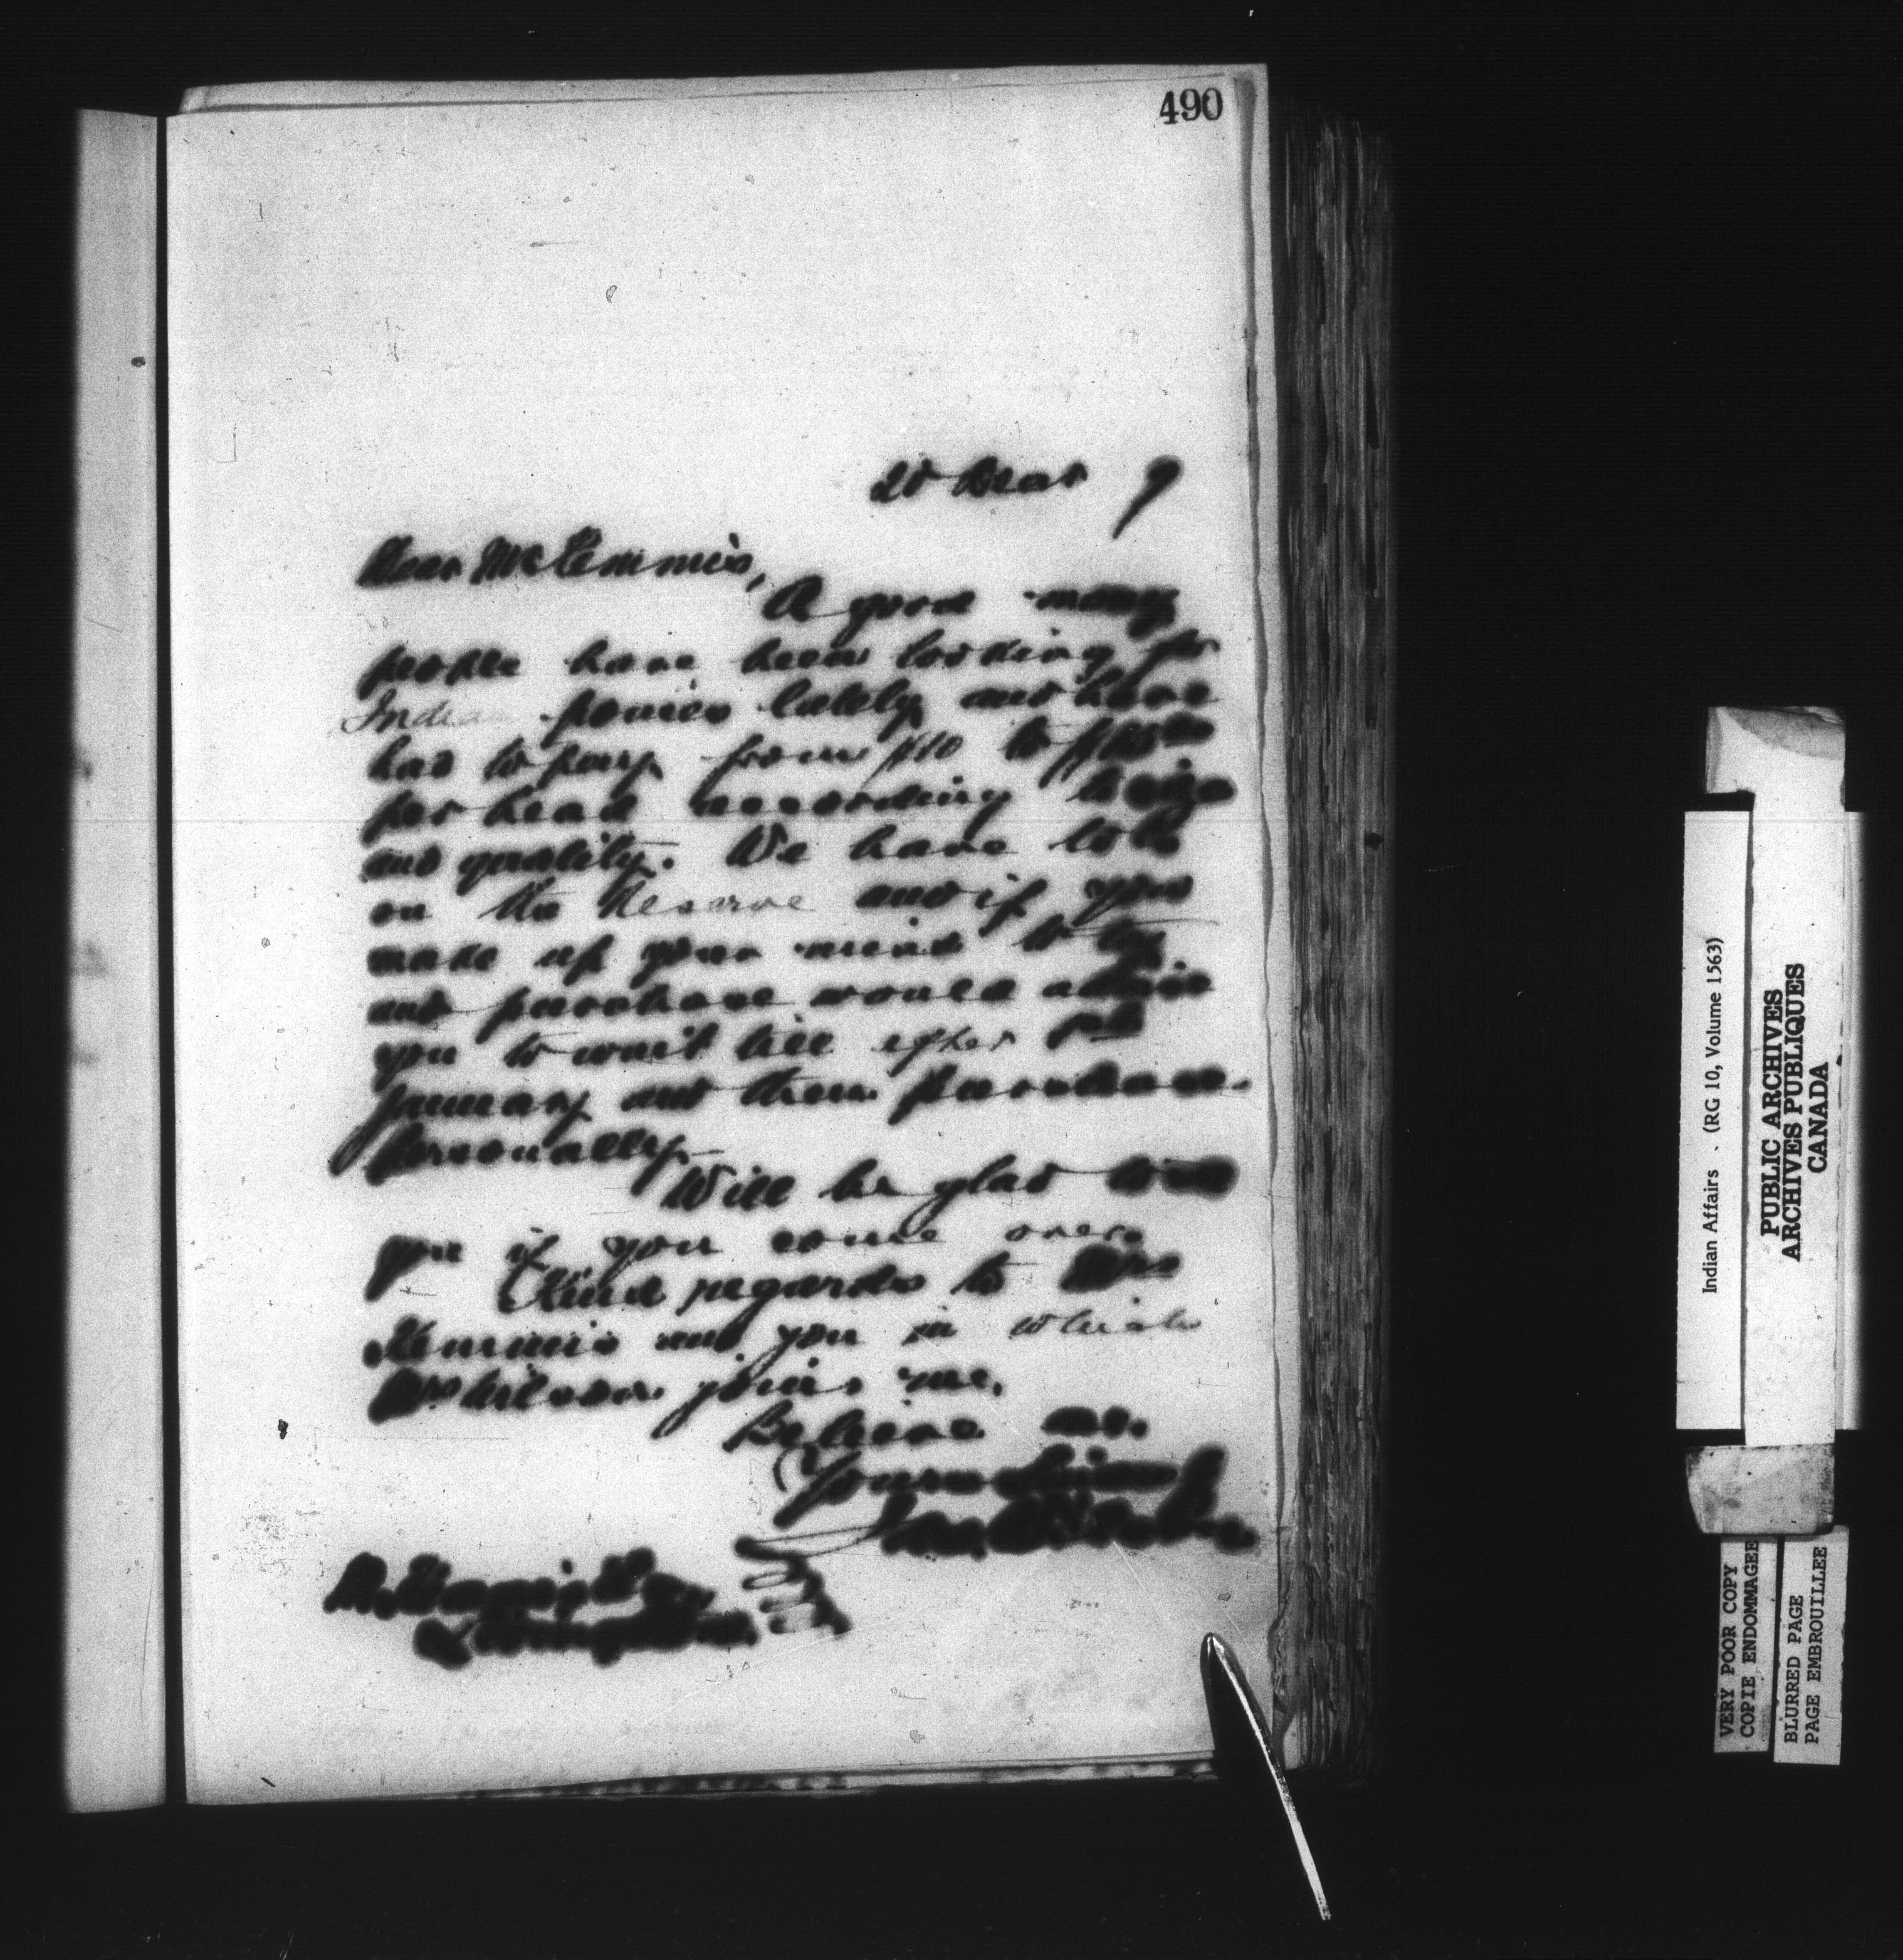 490
20 Decr 9
Dear Mr Kemmis,
A good many
people have been looking for
Indian ponies lately and have
had to pay from $10 to
per head according to size
and quality. We have lots
on the Reserve and if you
make up your mind to try
and purchase would advise
you to wait till after 1st
January and then purchase
personally.
Will be glad to see
you if you come over.
Kind regards to Mrs
Kemmis and you in which
Mrs Wilson joins me.
Believe me.
Yours
Kemmis
Indian Affairs . (RG 10, Volume 1563)
PUBLIC ARCHIVES
ARCHIVES PUBLIQUES
CANADA
VERY POOR COPY
COPIE ENDOMMAGEE
BLURRED PAGE
PAGE EMBROUILLEE